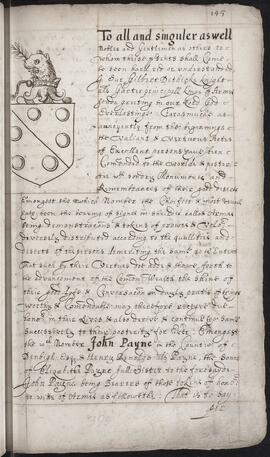 195
To all and singuler aswell
Nobles and Gentlemen as others to
whom these shall Come
be seen heard or understanded
Sr Gilbert Dethick Knight
alls Garter principall King of Armes
sendeth greeting in our Lord God
Everlasting. Forasmuch as
aunciently from the beginning
the Valiant & Vertuous
of Excellent persons have been
Comended to the world & posteri:
tie wth sondry Monuments and
Remembrances of their good deserts
Amongst the which Number the Chiefest & most usuall
hath been the bearing of Signes in called Armes
being demonstracons & tokens of prowes &
diversly distributed according to the qualities and
deserts of the persons meriting the same to
that such as by their Vertues doe add & shewe forth to
the advancement of the Common Wealth the shine of
their good life & Conversacon in dayly practise of things
worthy & Comendable may therefore receive due
honor in their Lives & also derive & continue the same
Successively to their posterity for Ever. Amongest
the wch Nomber John Payne in the Countie of
Denbigh Esq. & Henry als Payne, the Sonne
of Elizabeth Payne full Sister to the foresayd
John Payne being Bearers of those tokens of hono:
re with of Armes as followeth: That is to say